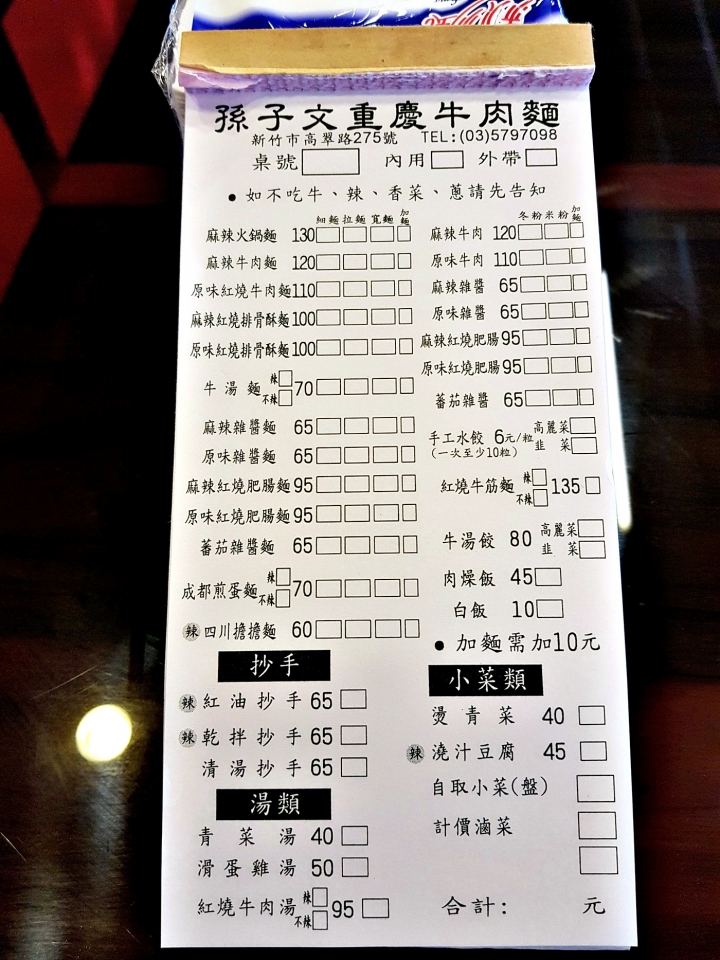 孫子文重慶牛肉麵
新竹市高翠路275號 TEL:(03)5797098
桌號 內用 外帶
●如不吃牛、辣、香菜、蔥請先告知
細麵 拉麵 寬麵 加麵
麻辣火鍋麵 130
麻辣牛肉麵 120
原味紅燒牛肉麵 110
麻辣紅燒排骨酥麵 100
原味紅燒排骨酥麵 100
牛湯麵 辣 不辣 70
麻辣雜醬麵 65
原味雜醬麵 65
麻辣紅燒肥腸麵 95
原味紅燒肥腸麵 95
蕃茄雜醬麵 65
成都煎蛋麵 辣 不辣 70
辣 四川擔擔麵 60
抄手
辣 紅油抄手 65
辣 乾拌抄手 65
清湯抄手 65
湯類
青菜湯 40
滑蛋雞湯 50
紅燒牛肉湯 辣 不辣 95
冬粉 米粉 加麵
麻辣牛肉 120
原味牛肉 110
麻辣雜醬 65
原味雜醬 65
麻辣紅燒肥腸 95
原味紅燒肥腸 95
蕃茄雜醬 65
手工水餃 6元/粒 高麗菜 韭菜
(一次至少10粒)
紅燒牛筋麵 辣 不辣 135
牛湯餃 80 高麗菜 韭菜
肉燥飯 45
白飯 10
●加麵需加10元
小菜類
燙青菜 40
辣 澆汁豆腐 45
自取小菜(盤)
計價滷菜
合計: 元